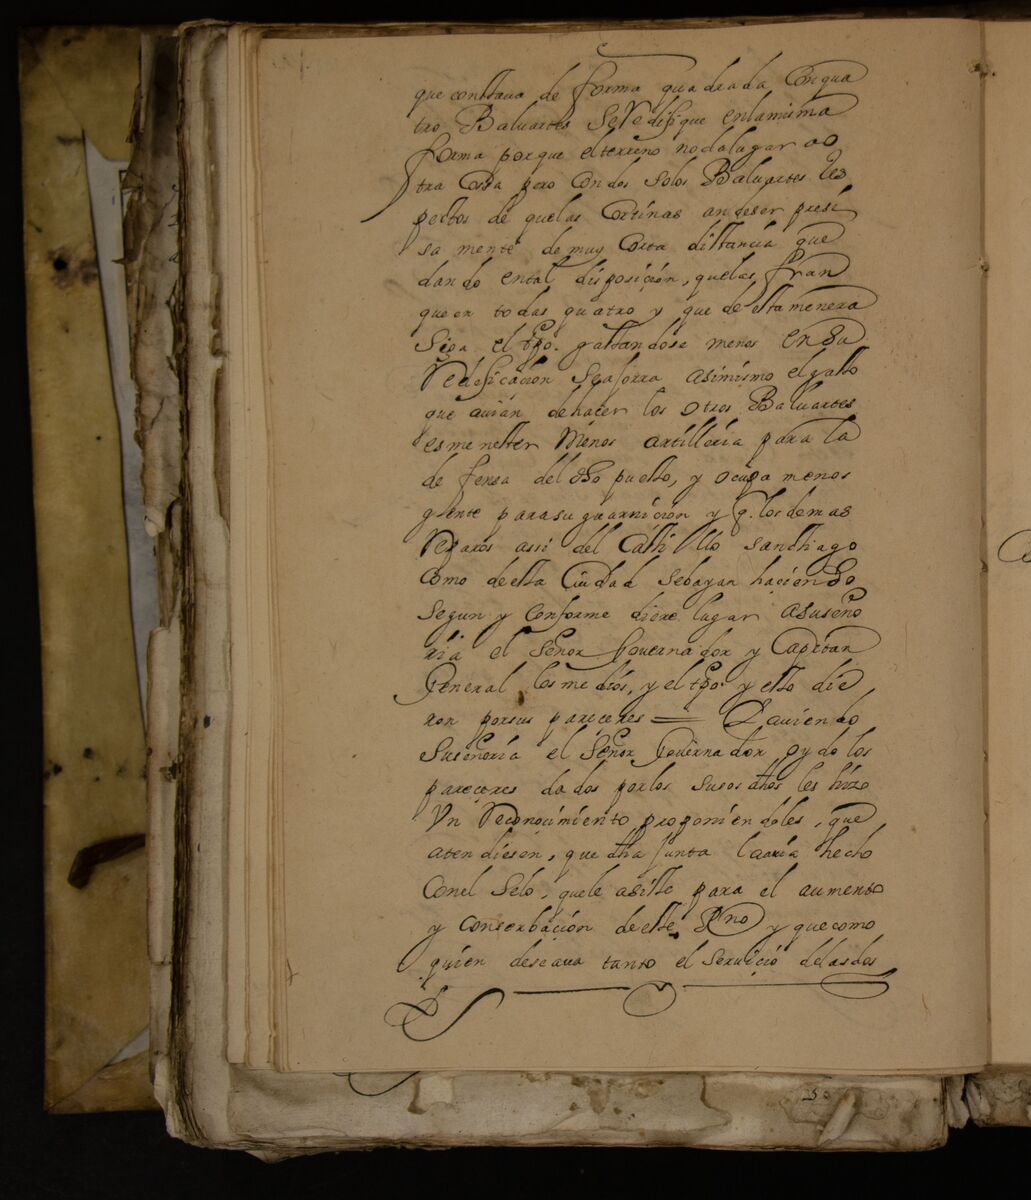 que constaua de forma quadrada Con qua
tro Baluartes Se Redifique enlamisma
forma porque elterreno no da lugar ao
tra Cossa pero Con dos solos Baluartes Res
pectos de quelas Cortinas an deser presi
sa mente de muy Corta distancia que
dando ental disposición, quelas fran
queen todas quatro y que de esta menera
Siga el tpo. gastandose menos en su
Redificación Seaforra asimismo el gasto
que auian dehacer los otros Baluartes
es menester Menos artilleria para la
defensa del dho puesto, y ocupa menos
gente parasu guarnicion y q. los demas
Reparos assi del Castillo Santhiago
Como deesta Ciudad sebayan haciendo
segun y Conforme diere lugar asuseño
ria el Señor Gouernador y Capitan
General los medios, y el tpo. y esto die
ron porsus pareceres = Y auiendo
Suseñoria el Señor Gouernador oydo los
pareçeres dados porlos susodhos les hizo
Un Reconocimiento proponiendoles, que
atendiesen, que dha junta la auia hecho
Conel Selo, quele asiste para el aumento
y Conserbaçion deeste Rno y quecomo
quien deseaua tanto el seruicio delasdos